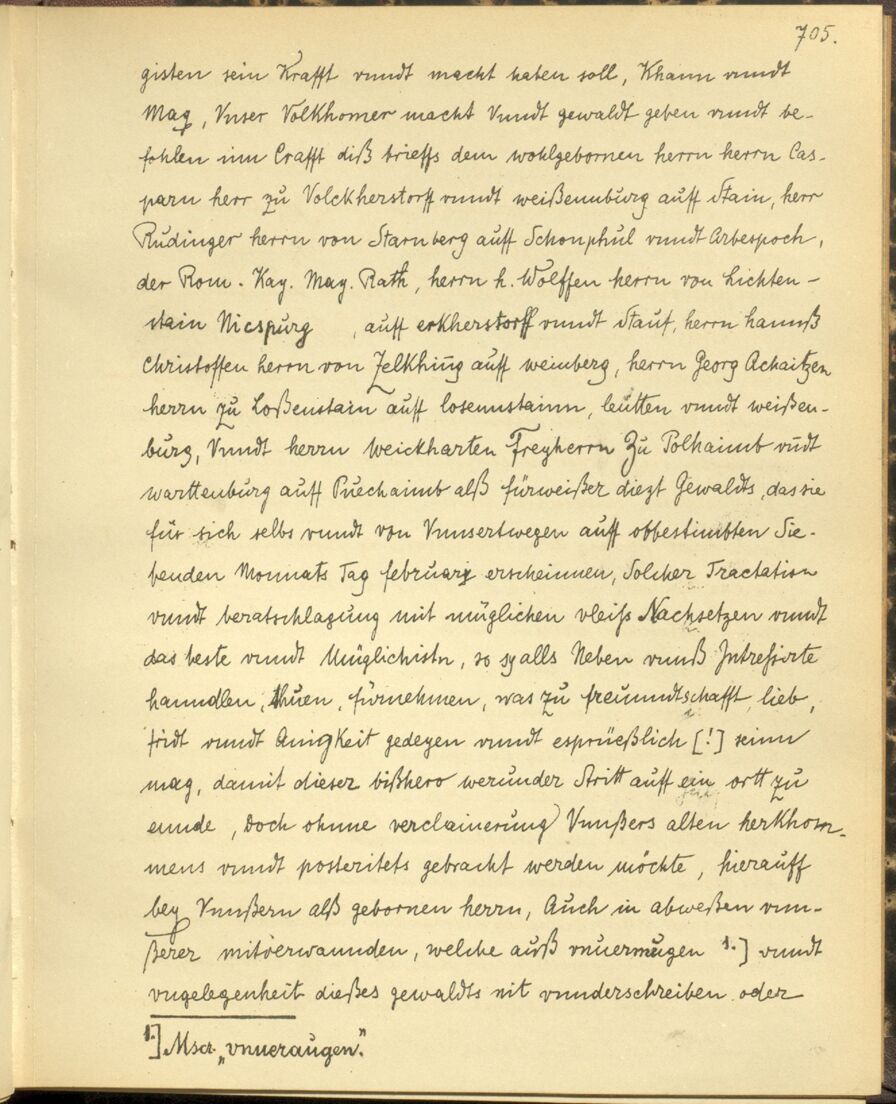 705.
gisten sein Krafft vnndt macht haben soll, Khann vnndt
Mag, Vnser Volkhomer macht Vnndt gewaldt geben vnndt be-
fohlen inn Crafft diß brieffs dem wohlgebornen herrn herrn Cas-
parn herr zu Volckherstorff vnndt weißennburg auff Stain, herr
Rüdinger herrn von Starnberg auff Schonphül vnndt Arbespoch,
der Rom. Kay. May. Rath, herrn h. Wolffen herrn von Lichten-
stain Nicspurg , auff erkherstorff vnndt Stauf, herrn hannß
Christoffen herrn von Zelkhing auff weinberg, herrn Georg Achaitzen
herrn zu Loßenstain auff losennstainn, leütten vnndt weißen-
burg, Vnndt herrn Weickharten Freyherrn Zu Polhaimb vndt
warttenburg auff Puechaimb alß fürweißer diezt Gewaldts, das sie
für sich selbs vnndt von Vnnsertwegen auff obbestimbten Sie-
benden Monnats Tag february erscheinnen, Solcher Tractation
vnndt beratschlagung mit müglichen vleiß Nachsetzen vnndt
das beste vnndt Müglichistn, so sy alls Neben vnnß Intressirte
hanndlen, thuen, fürnehmen, was zu freunndtschafft, lieb,
fridt vnndt Ainigkeit gedeyen vnndt esprüeßlich [!] seinn
mag, damit dieser bißhero werunder Stritt auff ein ortt zu
ennde, Doch ohnne verclainerung Vnnßers alten herkhom-
mens vnndt posteritets gebracht werden möchte, hierauff
bey Vnnßern alß gebornen herrn, Auch in abweßen vnn-
ßerer mitverwannden, welche auß vnuermügen 1.] vnndt
vngelegenheit dießes gewaldts nit vnnderschreiben oder
1.] Mscr. „vnueraugen."